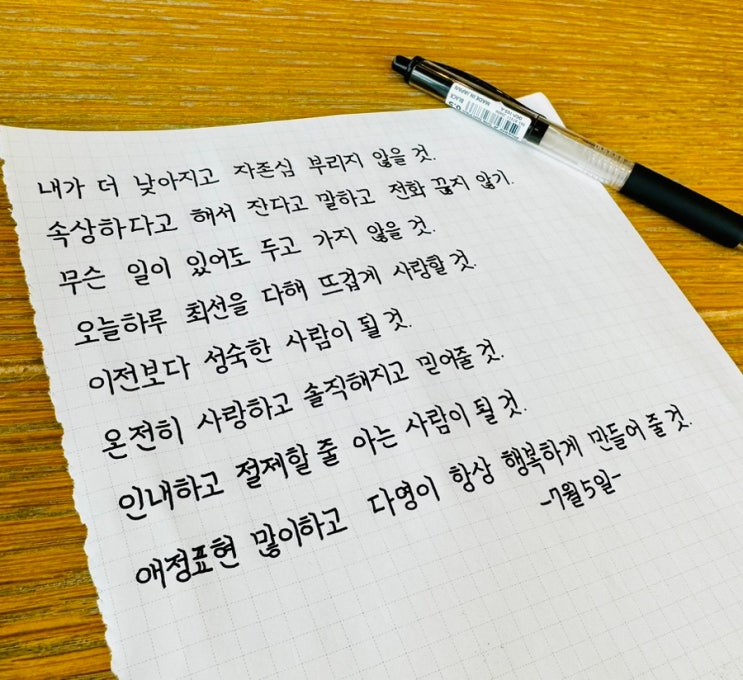 내가 더 낮아지고 자존심 부리지 않을 것.
속상하다고 해서 잔다고 말하고 전화 끊지 않기.
무슨 일이 있어도 두고 가지 않을 것.
오늘하루 최선을 다해 뜨겁게 사랑할 것.
이전보다 성숙한 사람이 될 것.
온전히 사랑하고 솔직해지고 믿어줄 것.
인내하고 절제할 줄 아는 사람이 될 것.
애정표현 많이하고 다영이 항상 행복하게 만들어 줄 것.
-7월 5일-
BLACK
MADE IN JAPAN